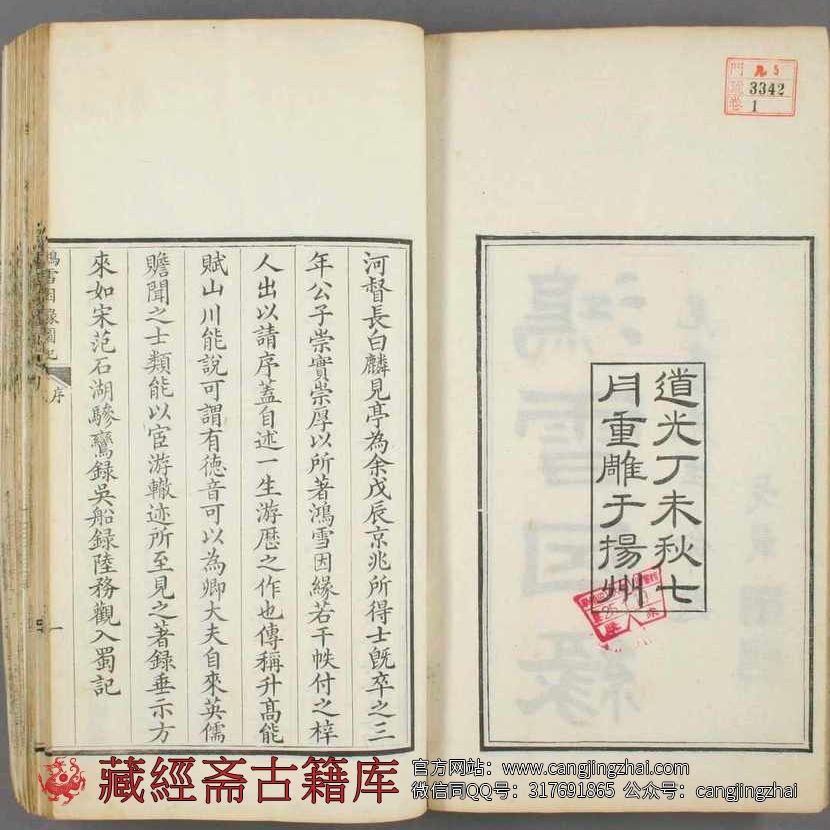 門 九 5
號 3342
卷 1
道光丁未秋七
月重雕于揚州
河督長白麟見亭為余戊辰京兆所得士既卒之三
年公子崇實崇厚以所著鴻雪因緣若干帙付之梓
人出以請序蓋自述一生游歷之作也傳稱升高能
賦山川能說可謂有德音可以為卿大夫自來英儒
贍聞之士類能以宦游轍迹所至見之著錄垂示方
來如宋范石湖驂鸞錄吳船錄陸務觀入蜀記
鴻雪因緣圖記
序
一
藏經斋古籍库
官方网站：www.cangjingzhai.com
微信同QQ号：317691865 公众号：cangjingzhai